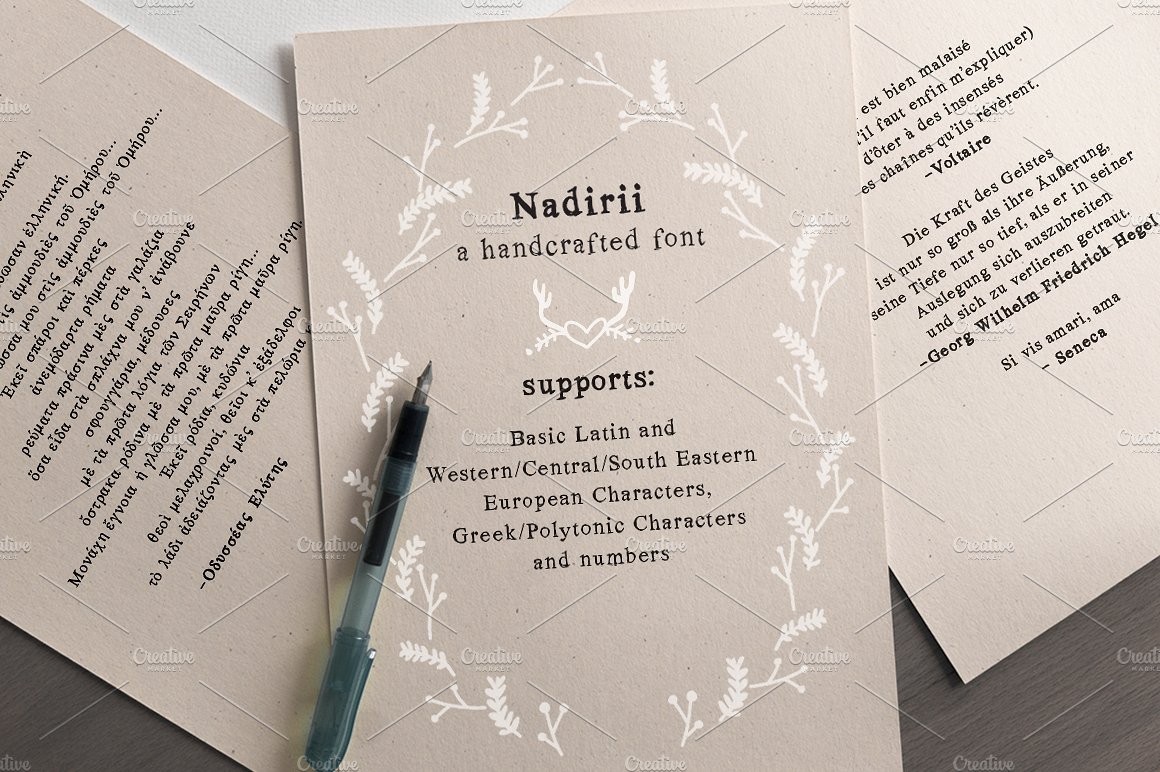 δωσαν ἑλληνική.
τὶς ἀμμουδιὲς τοῦ Ὁμήρου...
μου στὶς ἀμμουδιὲς τοῦ Ὁμήρου...
Ἐκεῖ σπάροι καὶ πέρκες
ἀνεμόδαρτα ρήματα
ρεύματα πράσινα μὲς στὰ γαλάζια
ὅσα εἶδα στὰ σπλάχνα μου ν' ἀνάβουνε
σφουγγάρια, μέδουσες
μὲ τὰ πρῶτα λόγια τῶν Σειρήνων
ὄστρακα ρόδινα μὲ τὰ πρῶτα μαῦρα ρίγη...
Μονάχη ἔγνοια ἡ γλῶσσα μου, μὲ τὰ πρῶτα μαῦρα ρίγη.
Ἐκεῖ ρόδια, κυδώνια
θεοὶ μελαχροινοί, θεῖοι κ' ἐξάδελφοι
τὸ λάδι ἀδειάζοντας μὲς στὰ πελώρια
-Ὀδυσσέας Ἐλύτης
Nadirii
a handcrafted font
supports:
Basic Latin and
Western/Central/South Eastern
European Characters,
Greek/Polytonic Characters
and numbers
est bien malaisé
'il faut enfin m'expliquer)
d'ôter à des insensés
es chaînes qu'ils révèrent.
-Voltaire
Die Kraft des Geistes
ist nur so groß als ihre Äußerung,
seine Tiefe nur so tief, als er in seiner
Auslegung sich auszubreiten
und sich zu verlieren getraut.
-Georg Wilhelm Friedrich Hegel
Si vis amari, ama
- Seneca
Creative
MARKET